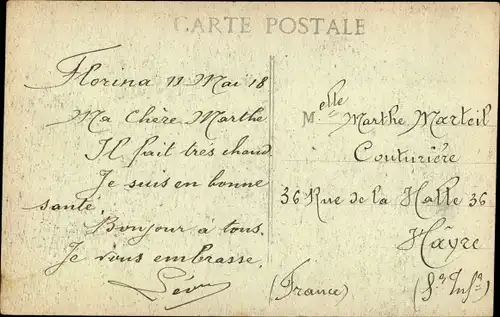 CARTE POSTALE
Florina 11 Mai 18
Ma Chère Marthe
Il fait très chaud
Je suis en bonne
santé.
Bonjour à tous.
Je vous embrasse.
Léon
Melle Marthe Marteil
Couturière
36 Rue de la Halle 36
Hâvre
(France) (Se Infre)